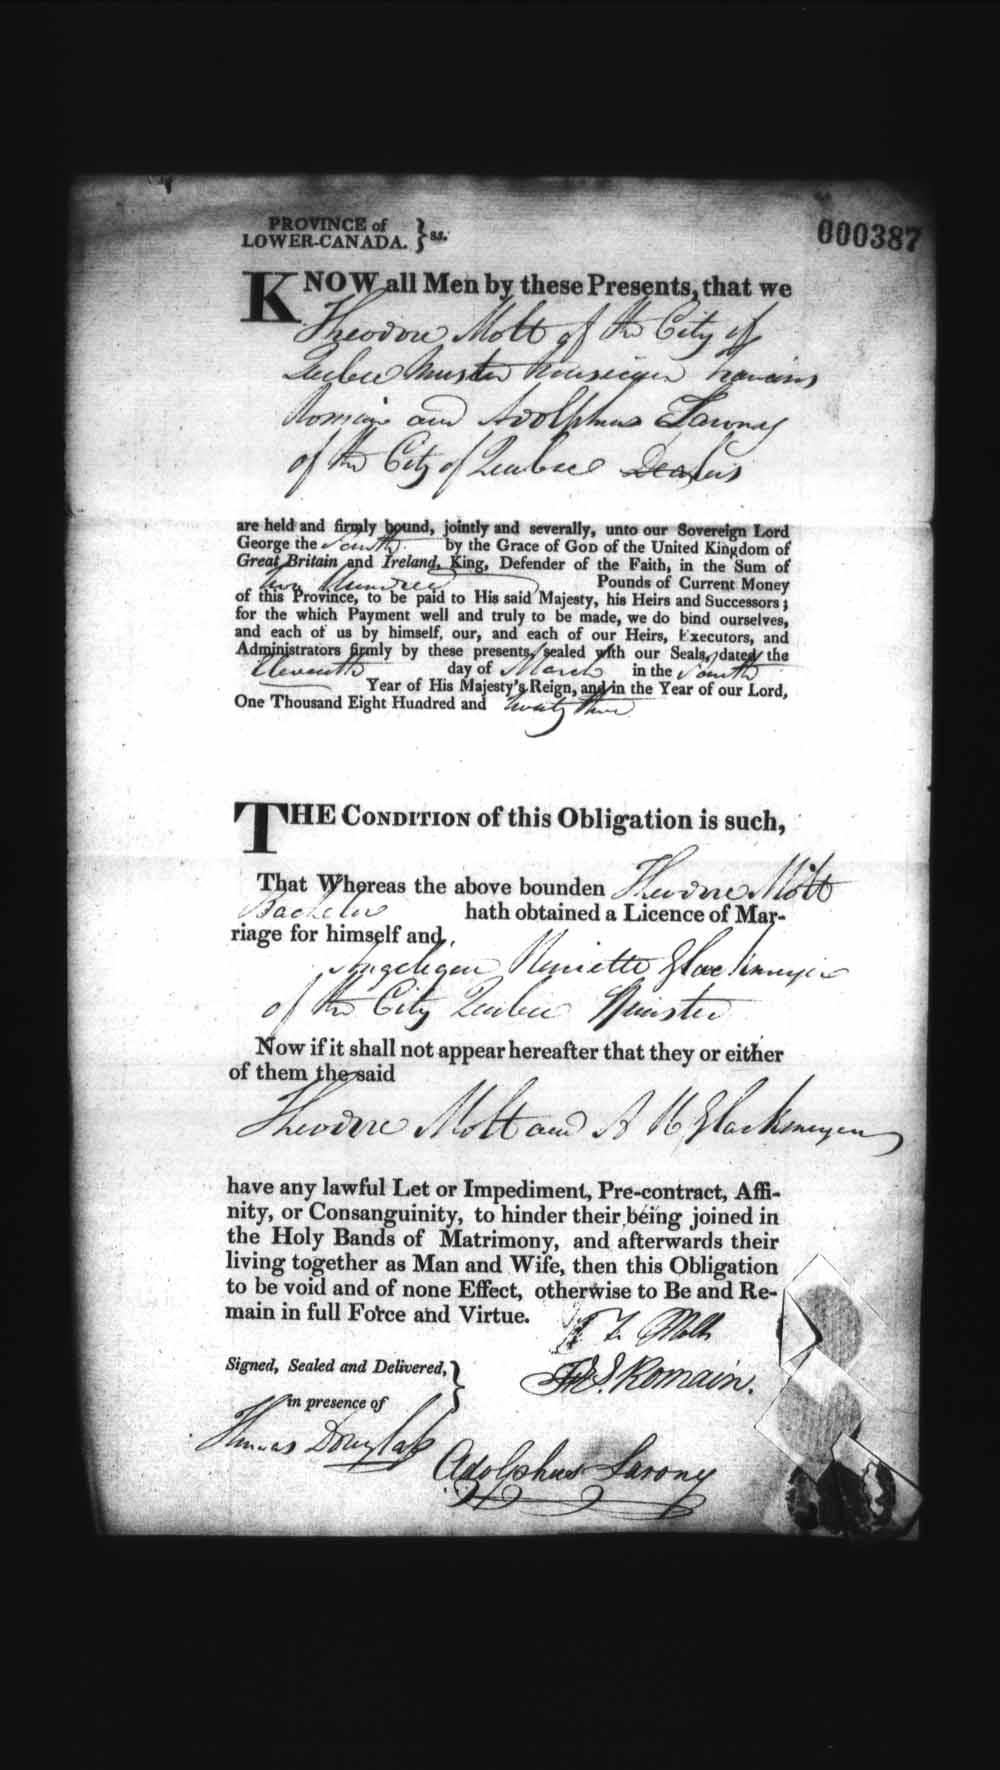 PROVINCE of
LOWER-CANADA. } ss.
000387
KNOW all Men by these Presents, that we
Theodore Molt of the City of
Quebec Master Musician Francois
Romain and Adolphus Larony
of the City of Quebec
are held and firmly bound, jointly and severally, unto our Sovereign Lord
George the Fourth by the Grace of GOD of the United Kingdom of
Great Britain and Ireland, King, Defender of the Faith, in the Sum of
Two Hundred Pounds of Current Money
of this Province, to be paid to His said Majesty, his Heirs and Successors;
for the which Payment well and truly to be made, we do bind ourselves,
and each of us by himself, our, and each of our Heirs, Executors, and
Administrators firmly by these presents, sealed with our Seals, dated the
Eleventh day of March in the Fourth
Year of His Majesty's Reign, and in the Year of our Lord,
One Thousand Eight Hundred and Twenty three
THE CONDITION of this Obligation is such,
That Whereas the above bounden Theodore Molt
Bachelor hath obtained a Licence of Mar-
riage for himself and,
Henriette Glackmeyer
of the City Quebec Spinster
Now if it shall not appear hereafter that they or either
of them the said
Theodore Molt and A H Glackmeyer
have any lawful Let or Impediment, Pre-contract, Affi-
nity, or Consanguinity, to hinder their being joined in
the Holy Bands of Matrimony, and afterwards their
living together as Man and Wife, then this Obligation
to be void and of none Effect, otherwise to Be and Re-
main in full Force and Virtue.
Molt
Signed, Sealed and Delivered, }
Romain.
in presence of
Thomas Douglas
Adolphus Larony